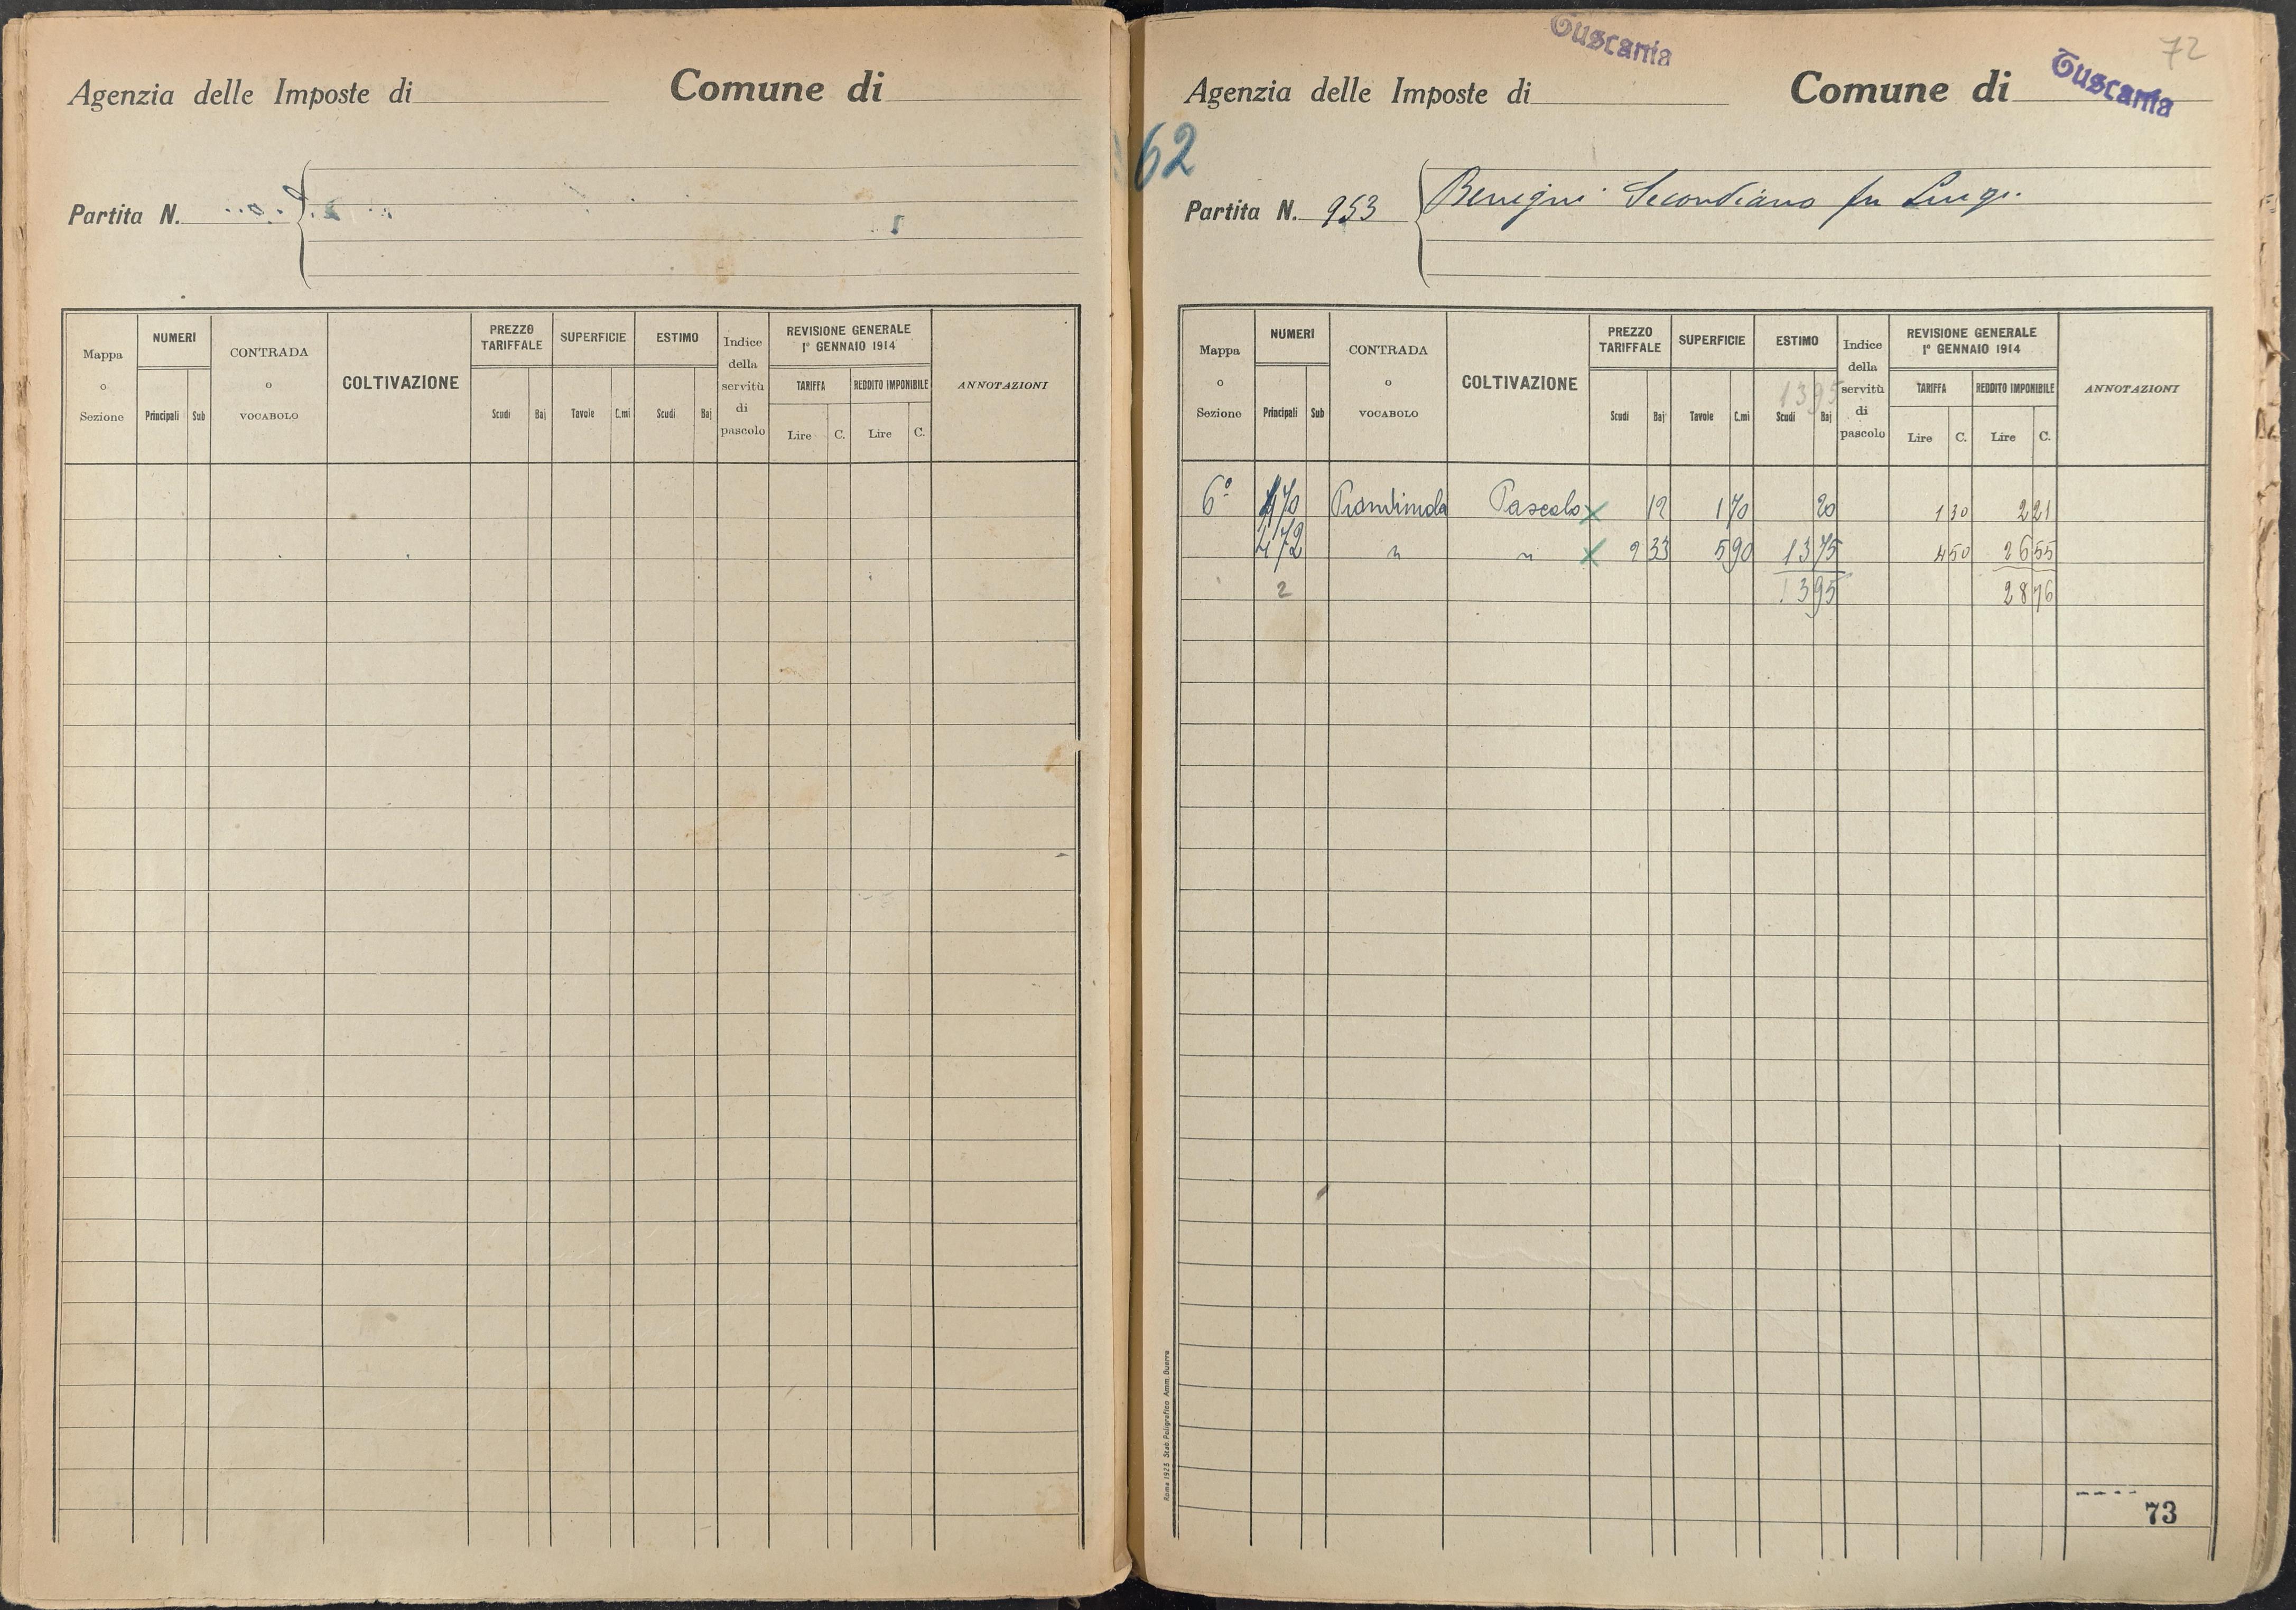 Agenzia delle Imposte di Comune di
Partita N.
Mappa o Sezione
NUMERI
Principali Sub
CONTRADA o VOCABOLO
COLTIVAZIONE
PREZZO TARIFFALE
Scudi Baj
SUPERFICIE
Tavole C.mi
ESTIMO
Scudi Baj
Indice della servitù di pascolo
REVISIONE GENERALE
1° GENNAIO 1914
TARIFFA REDDITO IMPONIBILE
Lire C. Lire C.
ANNOTAZIONI
Tuscania
72
Agenzia delle Imposte di Comune di Tuscania
62
Partita N. 953 Benigni Secondiano fu Luigi
Mappa o Sezione
NUMERI
Principali Sub
CONTRADA o VOCABOLO
COLTIVAZIONE
PREZZO TARIFFALE
Scudi Baj
SUPERFICIE
Tavole C.mi
ESTIMO
1395
Scudi Baj
Indice della servitù di pascolo
REVISIONE GENERALE
1° GENNAIO 1914
TARIFFA REDDITO IMPONIBILE
Lire C. Lire C.
ANNOTAZIONI
6° 470 Pascolo x 12 1 70 20 1 30 2 21
472 " " x 2 33 5 90 13 75 4 50 26 55
2 13 95 28 76
Roma 1925 Stab. Poligrafico Amm. Guerra
73